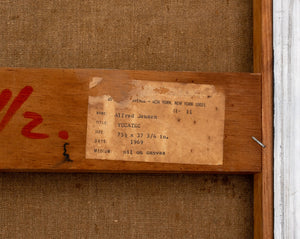 1/2.
- NEW YORK, NEW YORK 10021
NAME Alfred Jensen
TITLE YUCATEC
SIZE 75½ x 37 3/4 in.
DATE 1969
MEDIUM oil on canvas